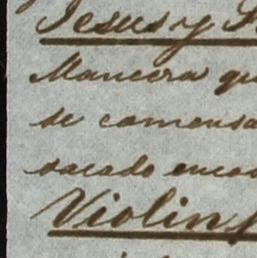 Jesus y
Maneera qu
se comensa
sacado encas
Violin